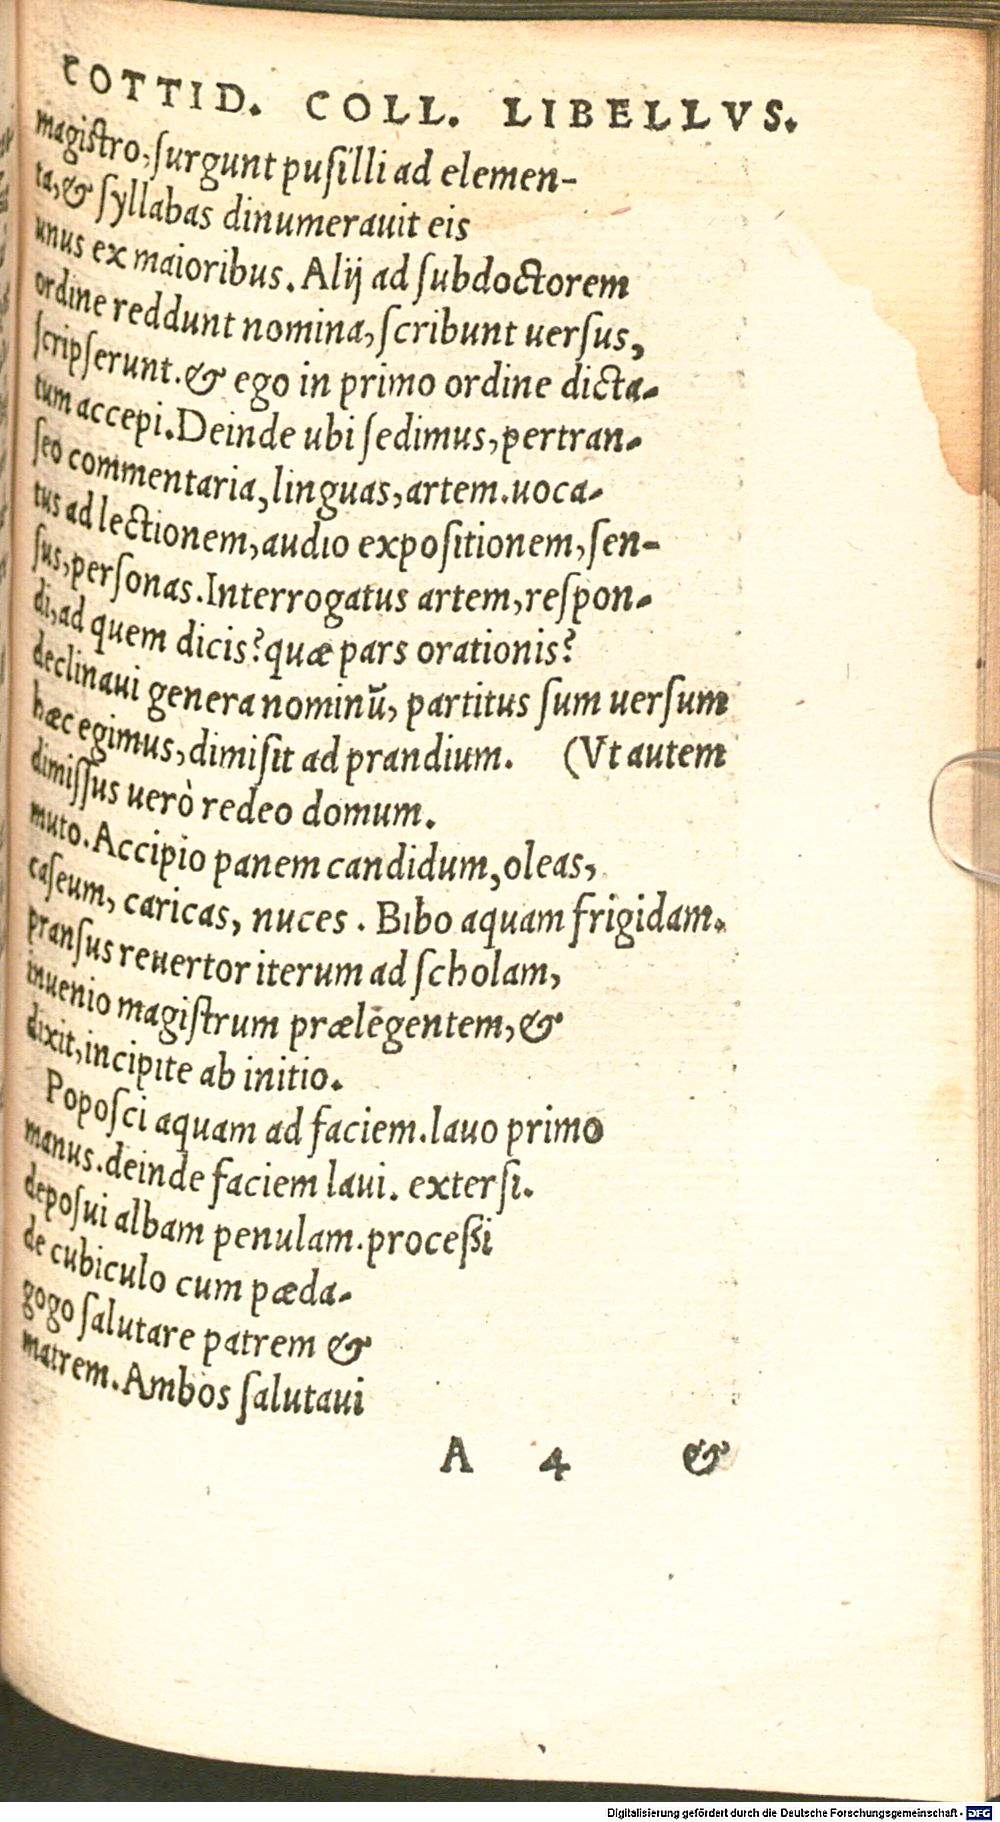 COTTID. COLL. LIBELLVS.
magistro, ſurgunt puſilli ad elemen-
ta, & ſyllabas dinumerauit eis
unus ex maioribus. Alij ad ſubdoctorem
ordine reddunt nomina, ſcribunt uerſus,
ſcripſerunt. & ego in primo ordine dicta-
tum accepi. Deinde ubi ſedimus, pertran-
ſeo commentaria, linguas, artem. uoca-
tus ad lectionem, audio expoſitionem, ſen-
ſus, perſonas. Interrogatus artem, reſpon-
di, ad quem dicis? quæ pars orationis?
declinaui genera nominū, partitus ſum uerſum
hæc egimus, dimiſit ad prandium. (Vt autem
dimiſſus uerò redeo domum.
muto. Accipio panem candidum, oleas,
caſeum, caricas, nuces. Bibo aquam frigidam.
pranſus reuertor iterum ad ſcholam,
inuenio magiſtrum prælegentem, &
dixit, incipite ab initio.
Popoſci aquam ad faciem. lauo primo
manus. deinde faciem laui. exterſi.
depoſui albam penulam. proceſſi
de cubiculo cum pæda-
gogo ſalutare patrem &
matrem. Ambos ſalutaui
A 4 &
Digitalisierung gefördert durch die Deutsche Forschungsgemeinschaft - DFG